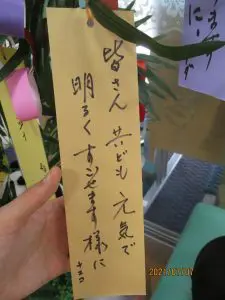 皆さん 共ども 元気で
明るく すごせます様に
2021/07/07